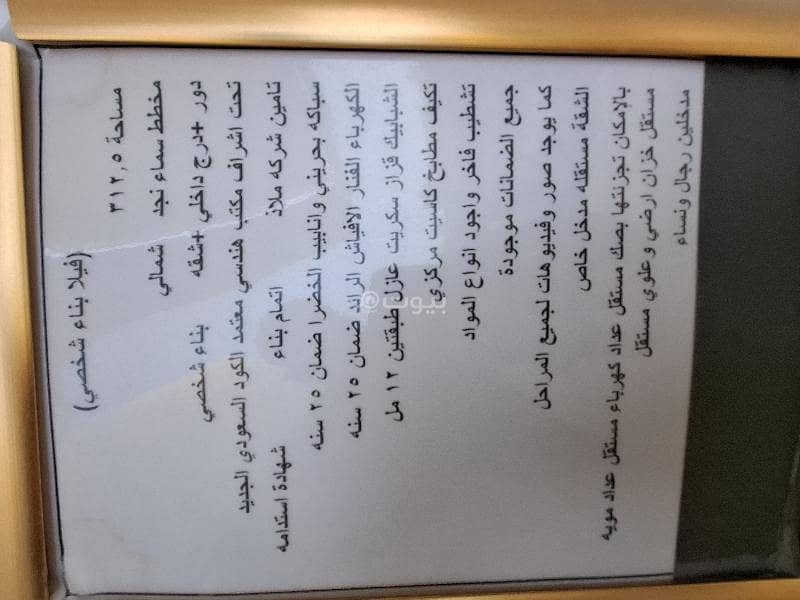 (فيلا بناء شخصي)
مساحة ٣١٢,٥
مخطط سماء نجد شمالي
دور +درج داخلي +شقه بناء شخصي
تحت اشراف مكتب هندسي معتمد الكود السعودي الجديد
تامين شركه ملاذ اتمام بناء شهادة استدامه
سباكه بحريني وانابيب الخضرا ضمان ٢٥ سنه
الكهرباء الفنار الافياش الرائد ضمان ٢٥ سنه
الشبابيك قزاز سكريت عازل طبقتين ١٢ مل
تكيف مطابخ كاسيت مركزي
تشطيب فاخر واجود انواع المواد
جميع الضمانات موجودة
كما يوجد صور وفيديوهات لجميع المراحل
الشقة مستقله مدخل خاص
بالإمكان تجزئتها بصك مستقل عداد كهرباء مستقل عداد مويه
مستقل خزان ارضي وعلوي مستقل
مدخلين رجال ونساء
بيوت@